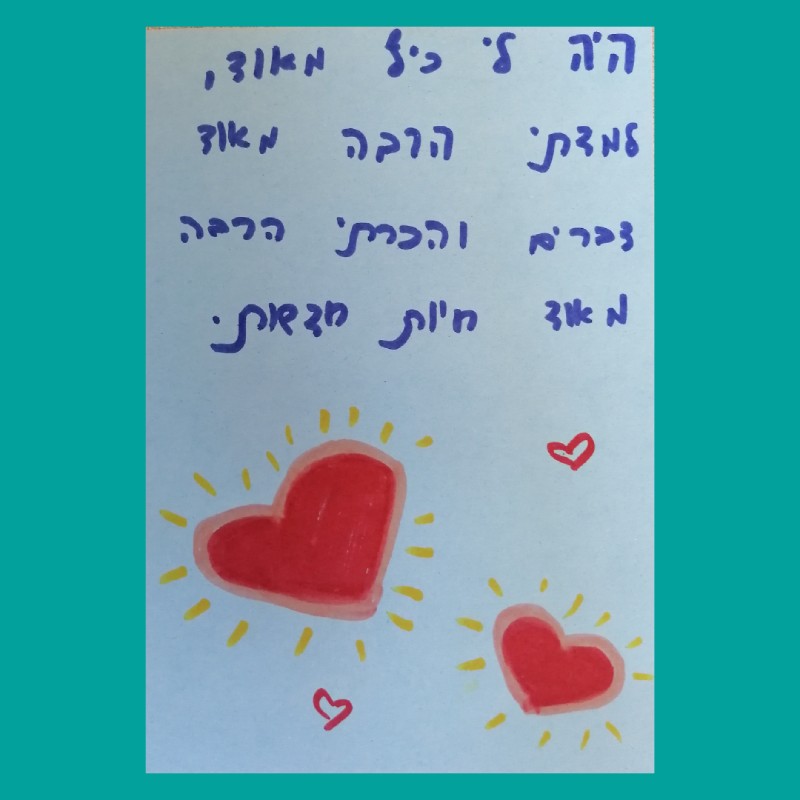 היה לי כיף מאוד,
למדתי הרבה מאוד
דברים והכרתי הרבה
מאוד חיות חדשות.